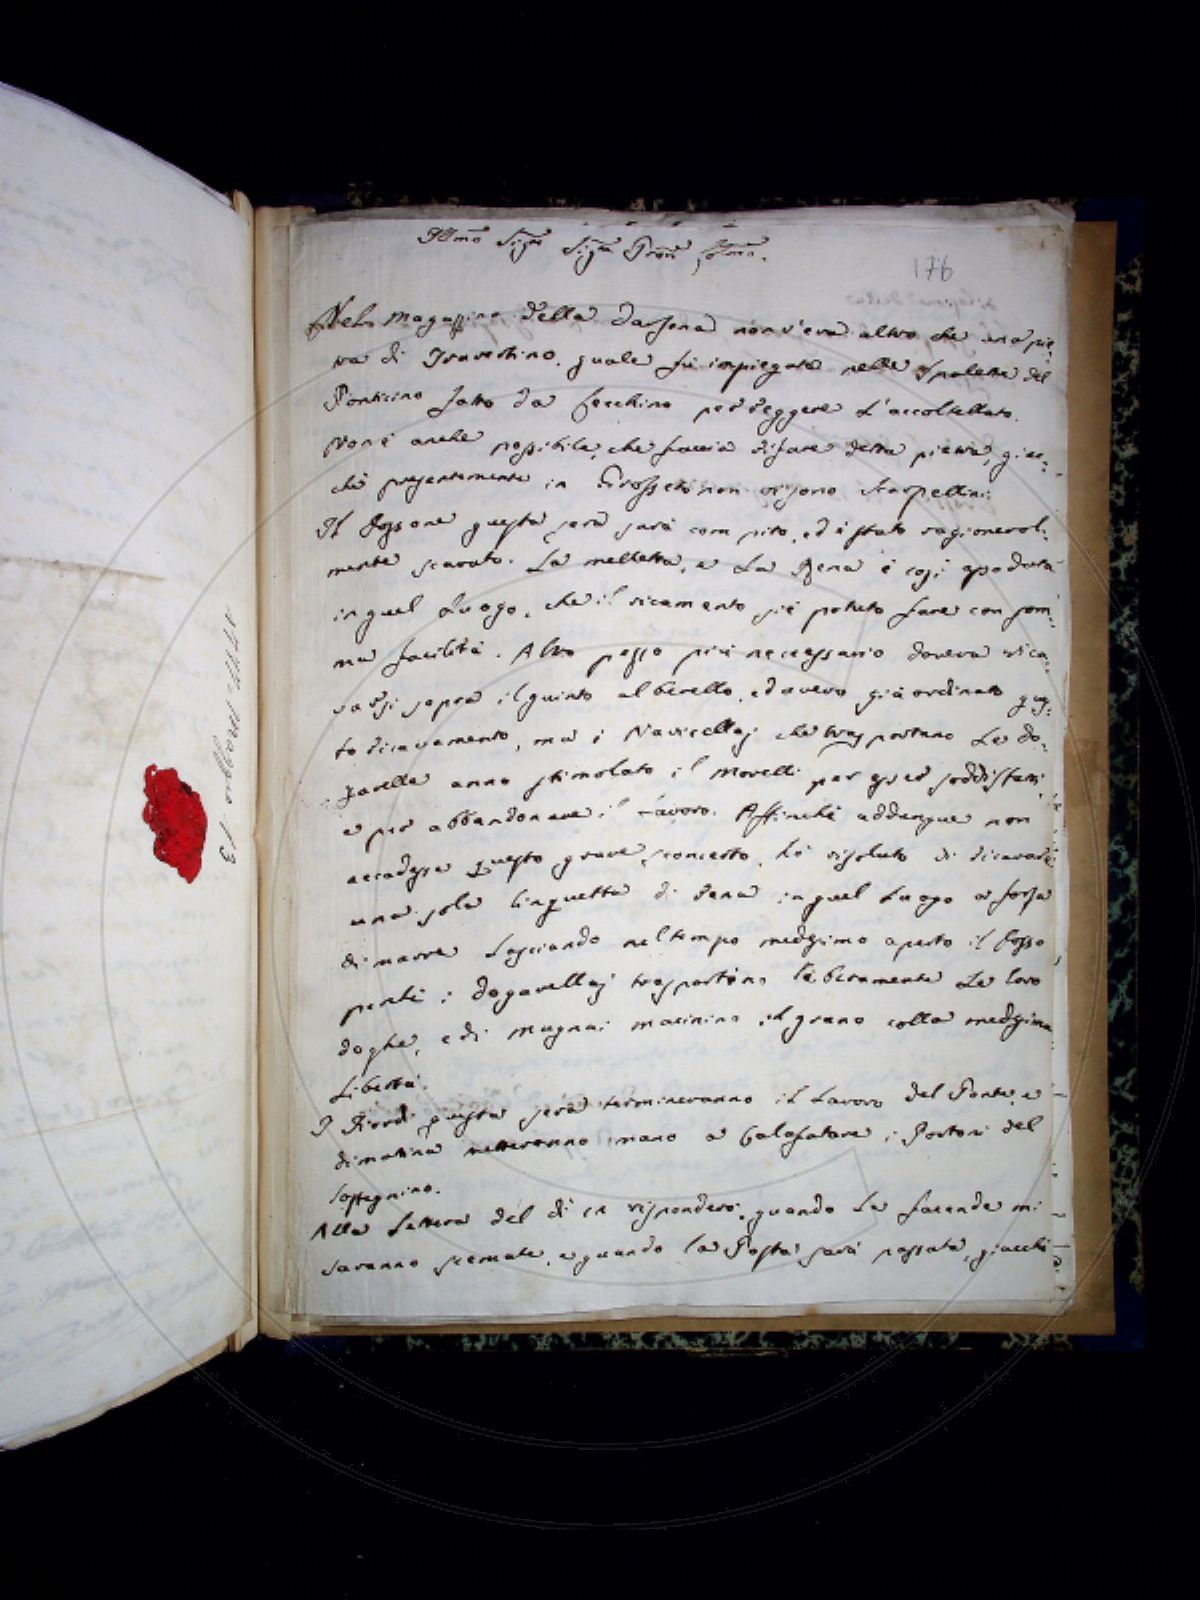 Illmo Sigre Sigre Prone Colmo.
176
Nel Magazzino della Darsena non v'era altro che una pie-
tra di Travertino, quale fù impiegata nelle Spalette del
Ponticino fatto da Cecchino per reggere l'accoltellato.
Non è anche possibile, che faccia rifare detta pietra, giac-
chè presentemente in Grosseto non vi sono Scarpellini.
Il Fossone questa sera sarà compito, ed è stato ragionevol-
mente scavato. La melletta, e La Rena è così apodata
in quel Luogo, che il ricamento si è potuto fare con som-
ma facilità. Altro pezzo più necessario doveva rica-
varsi sopra il quinto alberello, ed avevo già ordinato ques-
to ricavamento, ma i Navicellaj che trasportano Le Do-
garelle anno stimolato il Morelli per esser soddisfatti,
e per abbandonare il Lavoro. Affinchè addunque non
accadesse questo grave sconcerto, hò risoluto di ricavare
una sola linguetta di Rena in quel Luogo a forza
di marre Lasciando nel tempo medesimo aperto il Fosso
perchè i dogarellaj trasportino liberamente Le loro
doghe, ed i Mugnai macinino il grano colla medesima
Libertà.
I Ricordi questa sera termineranno il Lavoro del Ponte, e
dimatina metteranno mano a Calafatare i Portoni del
Sostegnino.
Alla Lettera del dì 12 risponderò, quando Le facende mi
saranno scemate, e quando la Posta sarà passata, giacchè